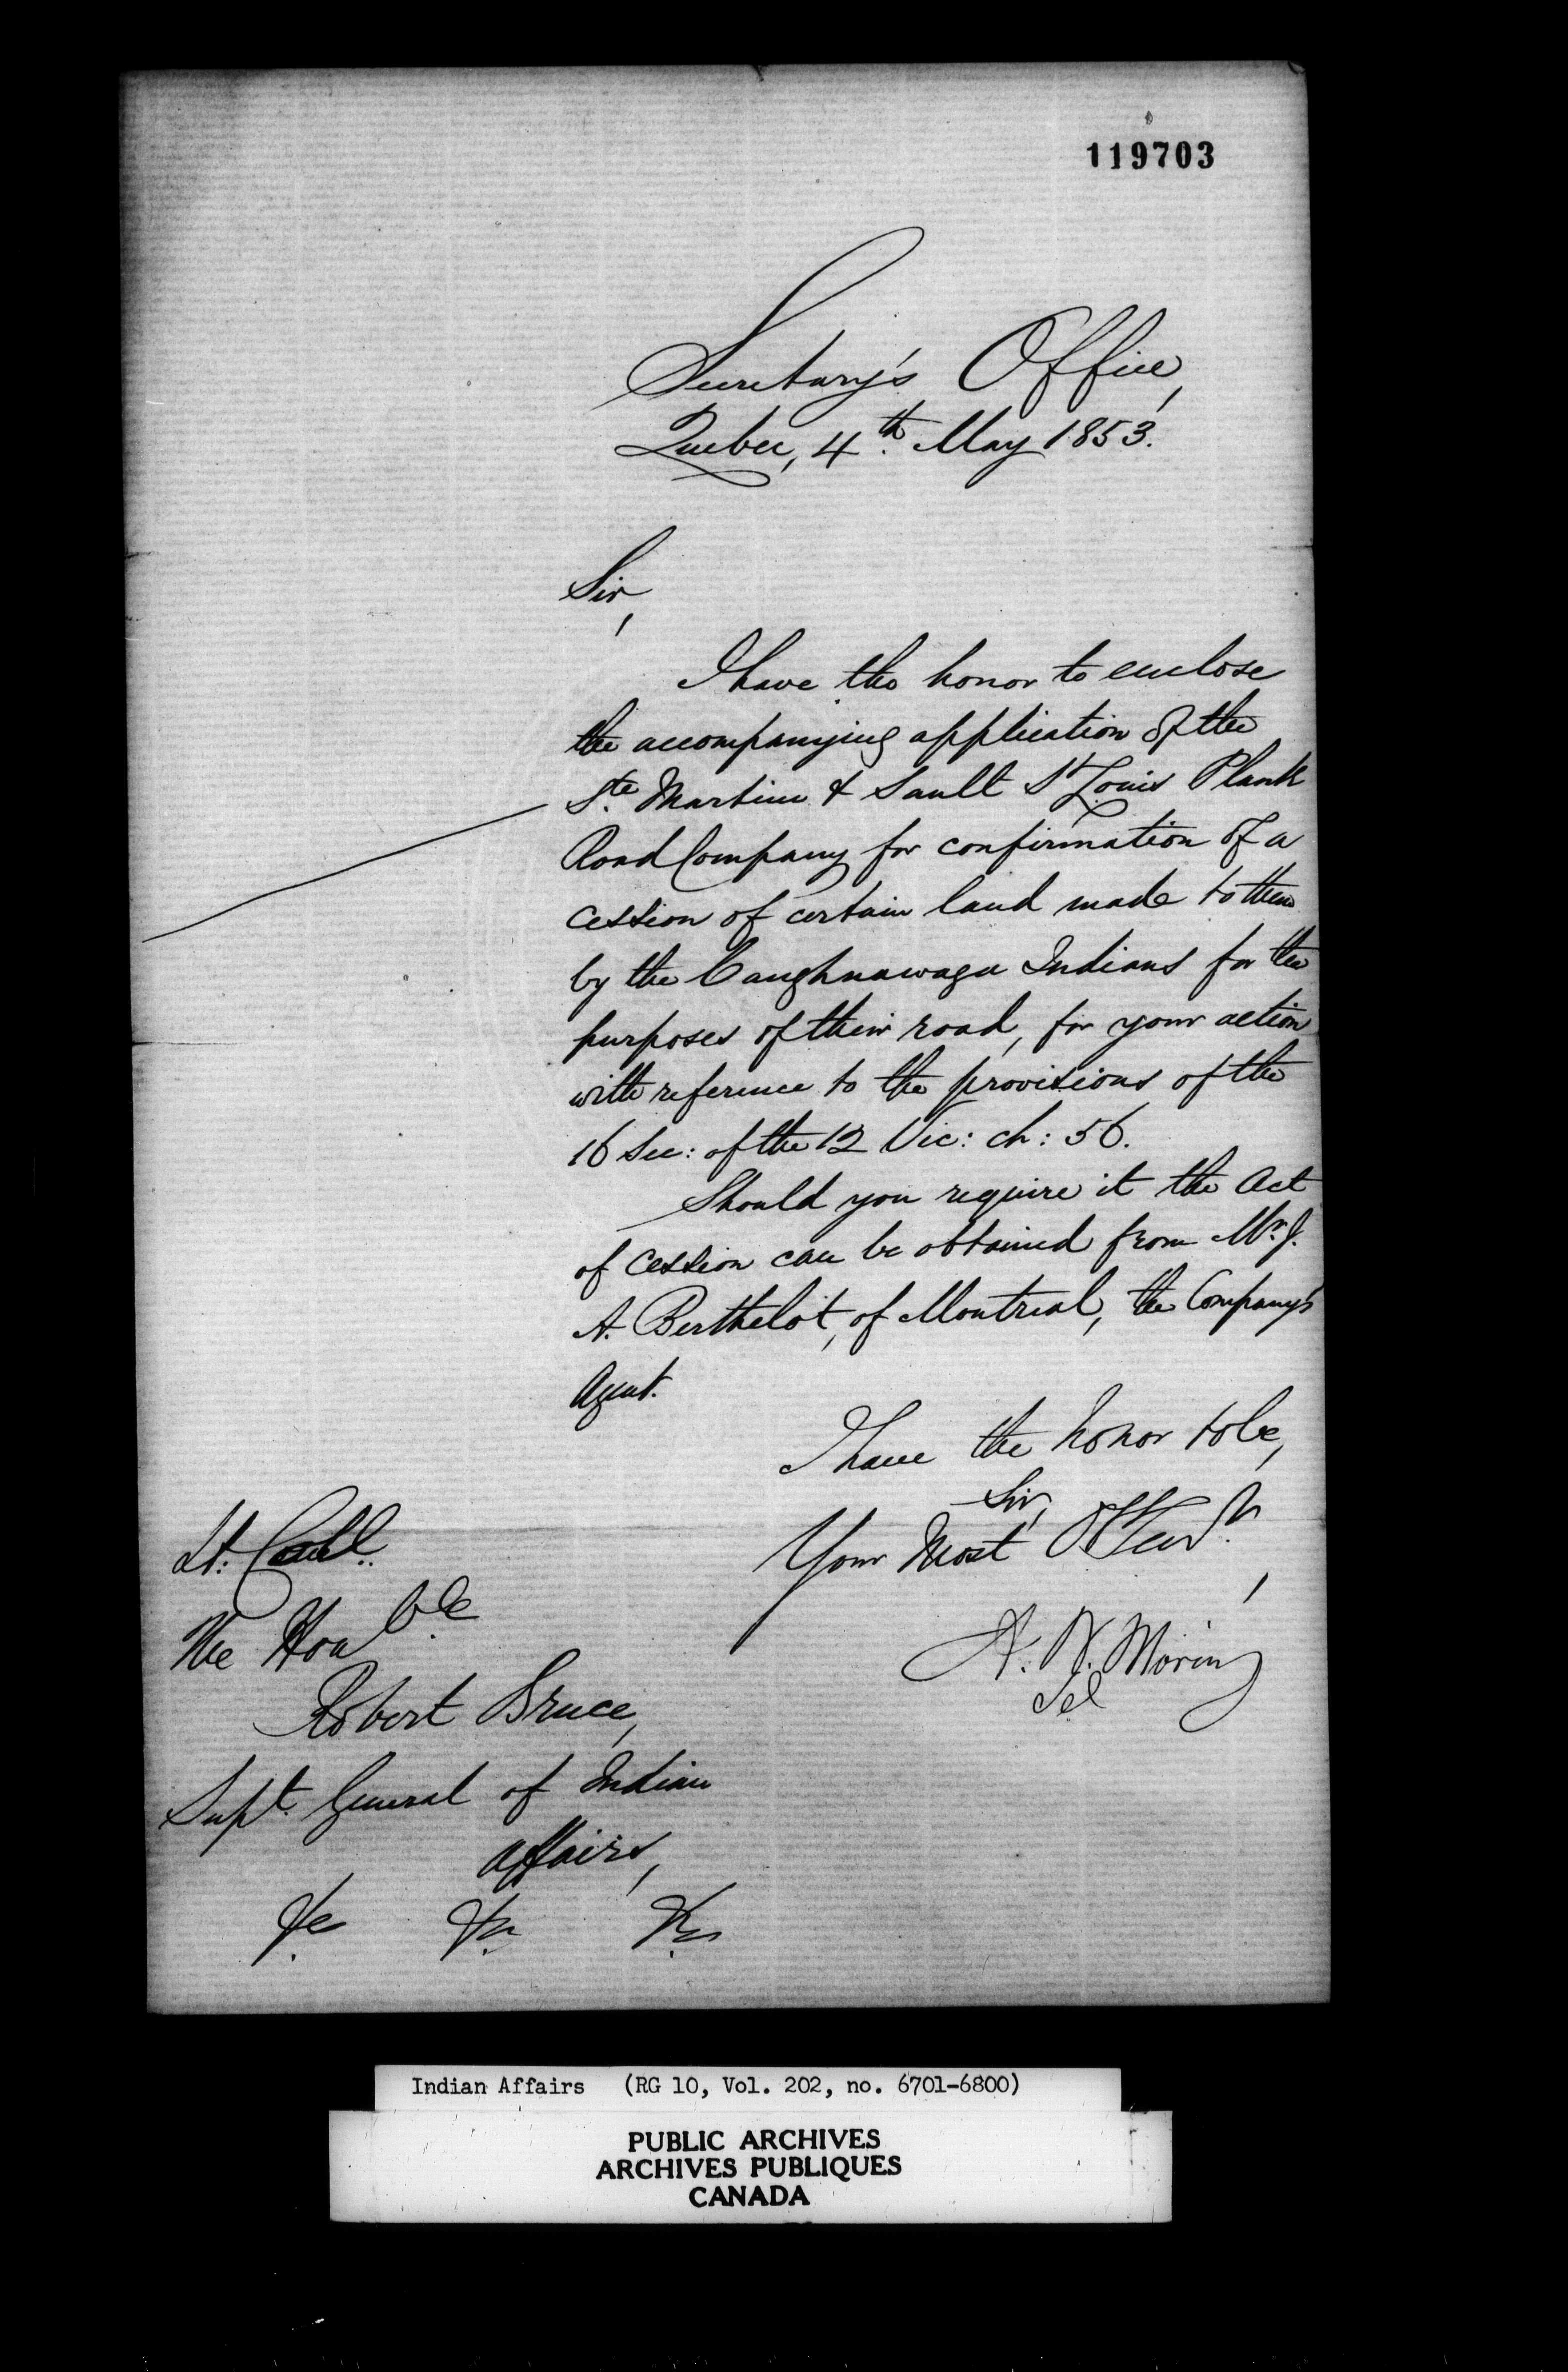 119703
Secretary's Office,
Quebec, 4th. May 1853.
Sir,
I have the honor to enclose
the accompanying application of the
Ste. Martine & Sault St Louis Plank
Road Company for confirmation of a
cession of certain land made to them
by the Caughnawaga Indians for the
purposes of their road, for your action
with reference to the provisions of the
16 Sec: of the 12 Vic: ch: 56.
Should you require it the Act
of cession can be obtained from Mr. J.
A. Berthelot, of Montreal, the Company's
Agent.
I have the honor to be,
Sir,
Your Most Obt Servt.,
A. N. Morin
Sec
Lt. Coll.
The Honble
Robert Bruce,
Supt. General of Indian
Affairs,
&c. &c. &c.
Indian Affairs (RG 10, Vol. 202, no. 6701-6800)
PUBLIC ARCHIVES
ARCHIVES PUBLIQUES
CANADA